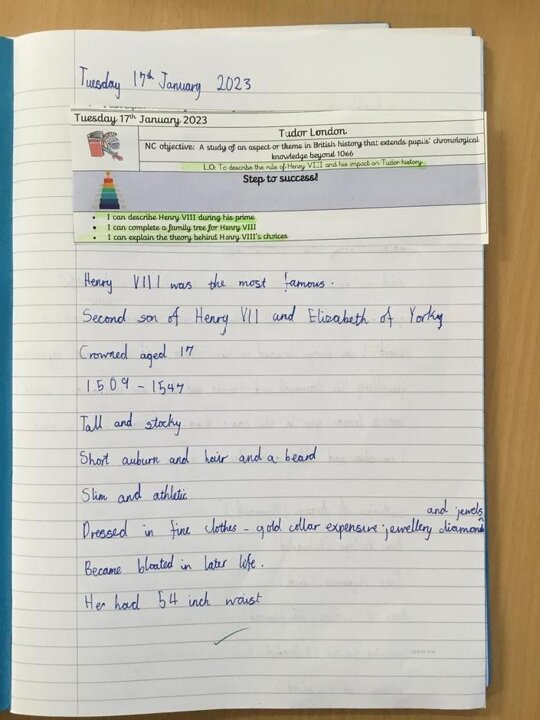 Tuesday 17th January 2023
Tuesday 17th January 2023
Tudor London
NC objective: A study of an aspect or theme in British history that extends pupils' chronological
knowledge beyond 1066
L.O: To describe the rule of Henry VIII and his impact on Tudor history
Step to success!
• I can describe Henry VIII during his prime
• I can complete a family tree for Henry VIII
• I can explain the theory behind Henry VIII's choices
Henry VIII was the most famous.
Second son of Henry VII and Elizabeth of Yorky
Crowned aged 17
1509 - 1547
Tall and stocky
Short auburn and hair and a beard
Slim and athletic
and jewels
Dressed in fine clothes - gold collar expensive jewellery diamond
Became bloated in later life.
He had 54 inch waist